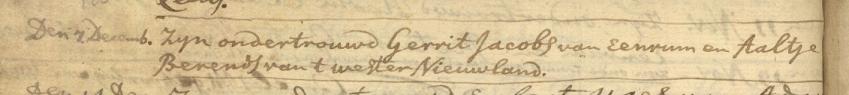 Den 7 Decemb. Zyn ondertrouwd Gerrit Jacobs van Eenrum en Aaltje
Berends van t wester Nieuwland.